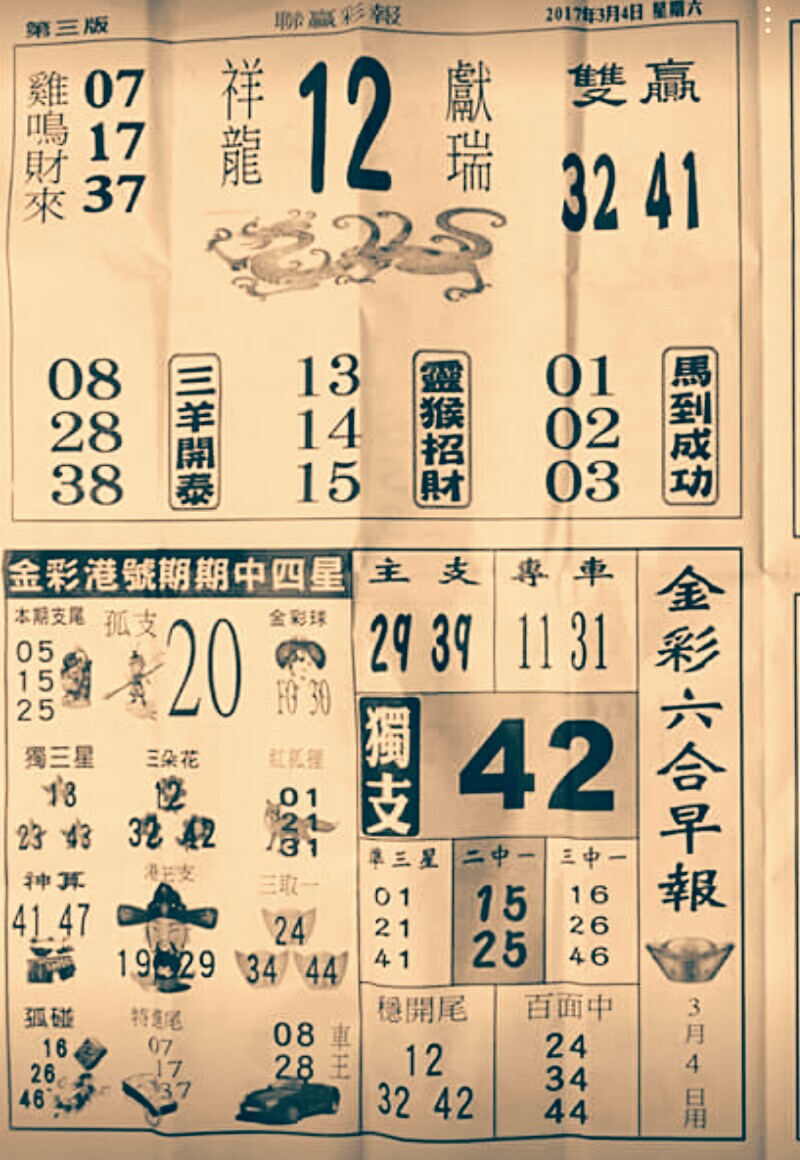 第三版 聯贏彩報 2017年3月4日 星期六
雞鳴財來
07
17
37
祥龍
12
獻瑞
雙贏
32 41
08
28
38
三羊開泰
13
14
15
靈猴招財
01
02
03
馬到成功
金彩港號期期中四星
本期支尾
05
15
25
孤支
20
金彩球
10 30
獨三星
13
23 43
三朵花
12
32 42
紅狐狸
01
21
31
神算
41 47
港主支
19 29
三取一
24
34 44
狐碰
16
26
46
特進尾
07
17
37
08
28
車王
主支
29 39
專車
11 31
獨支
42
準三星
01
21
41
二中一
15
25
三中一
16
26
46
穩開尾
12
32 42
百面中
24
34
44
金彩六合早報
3月4日用